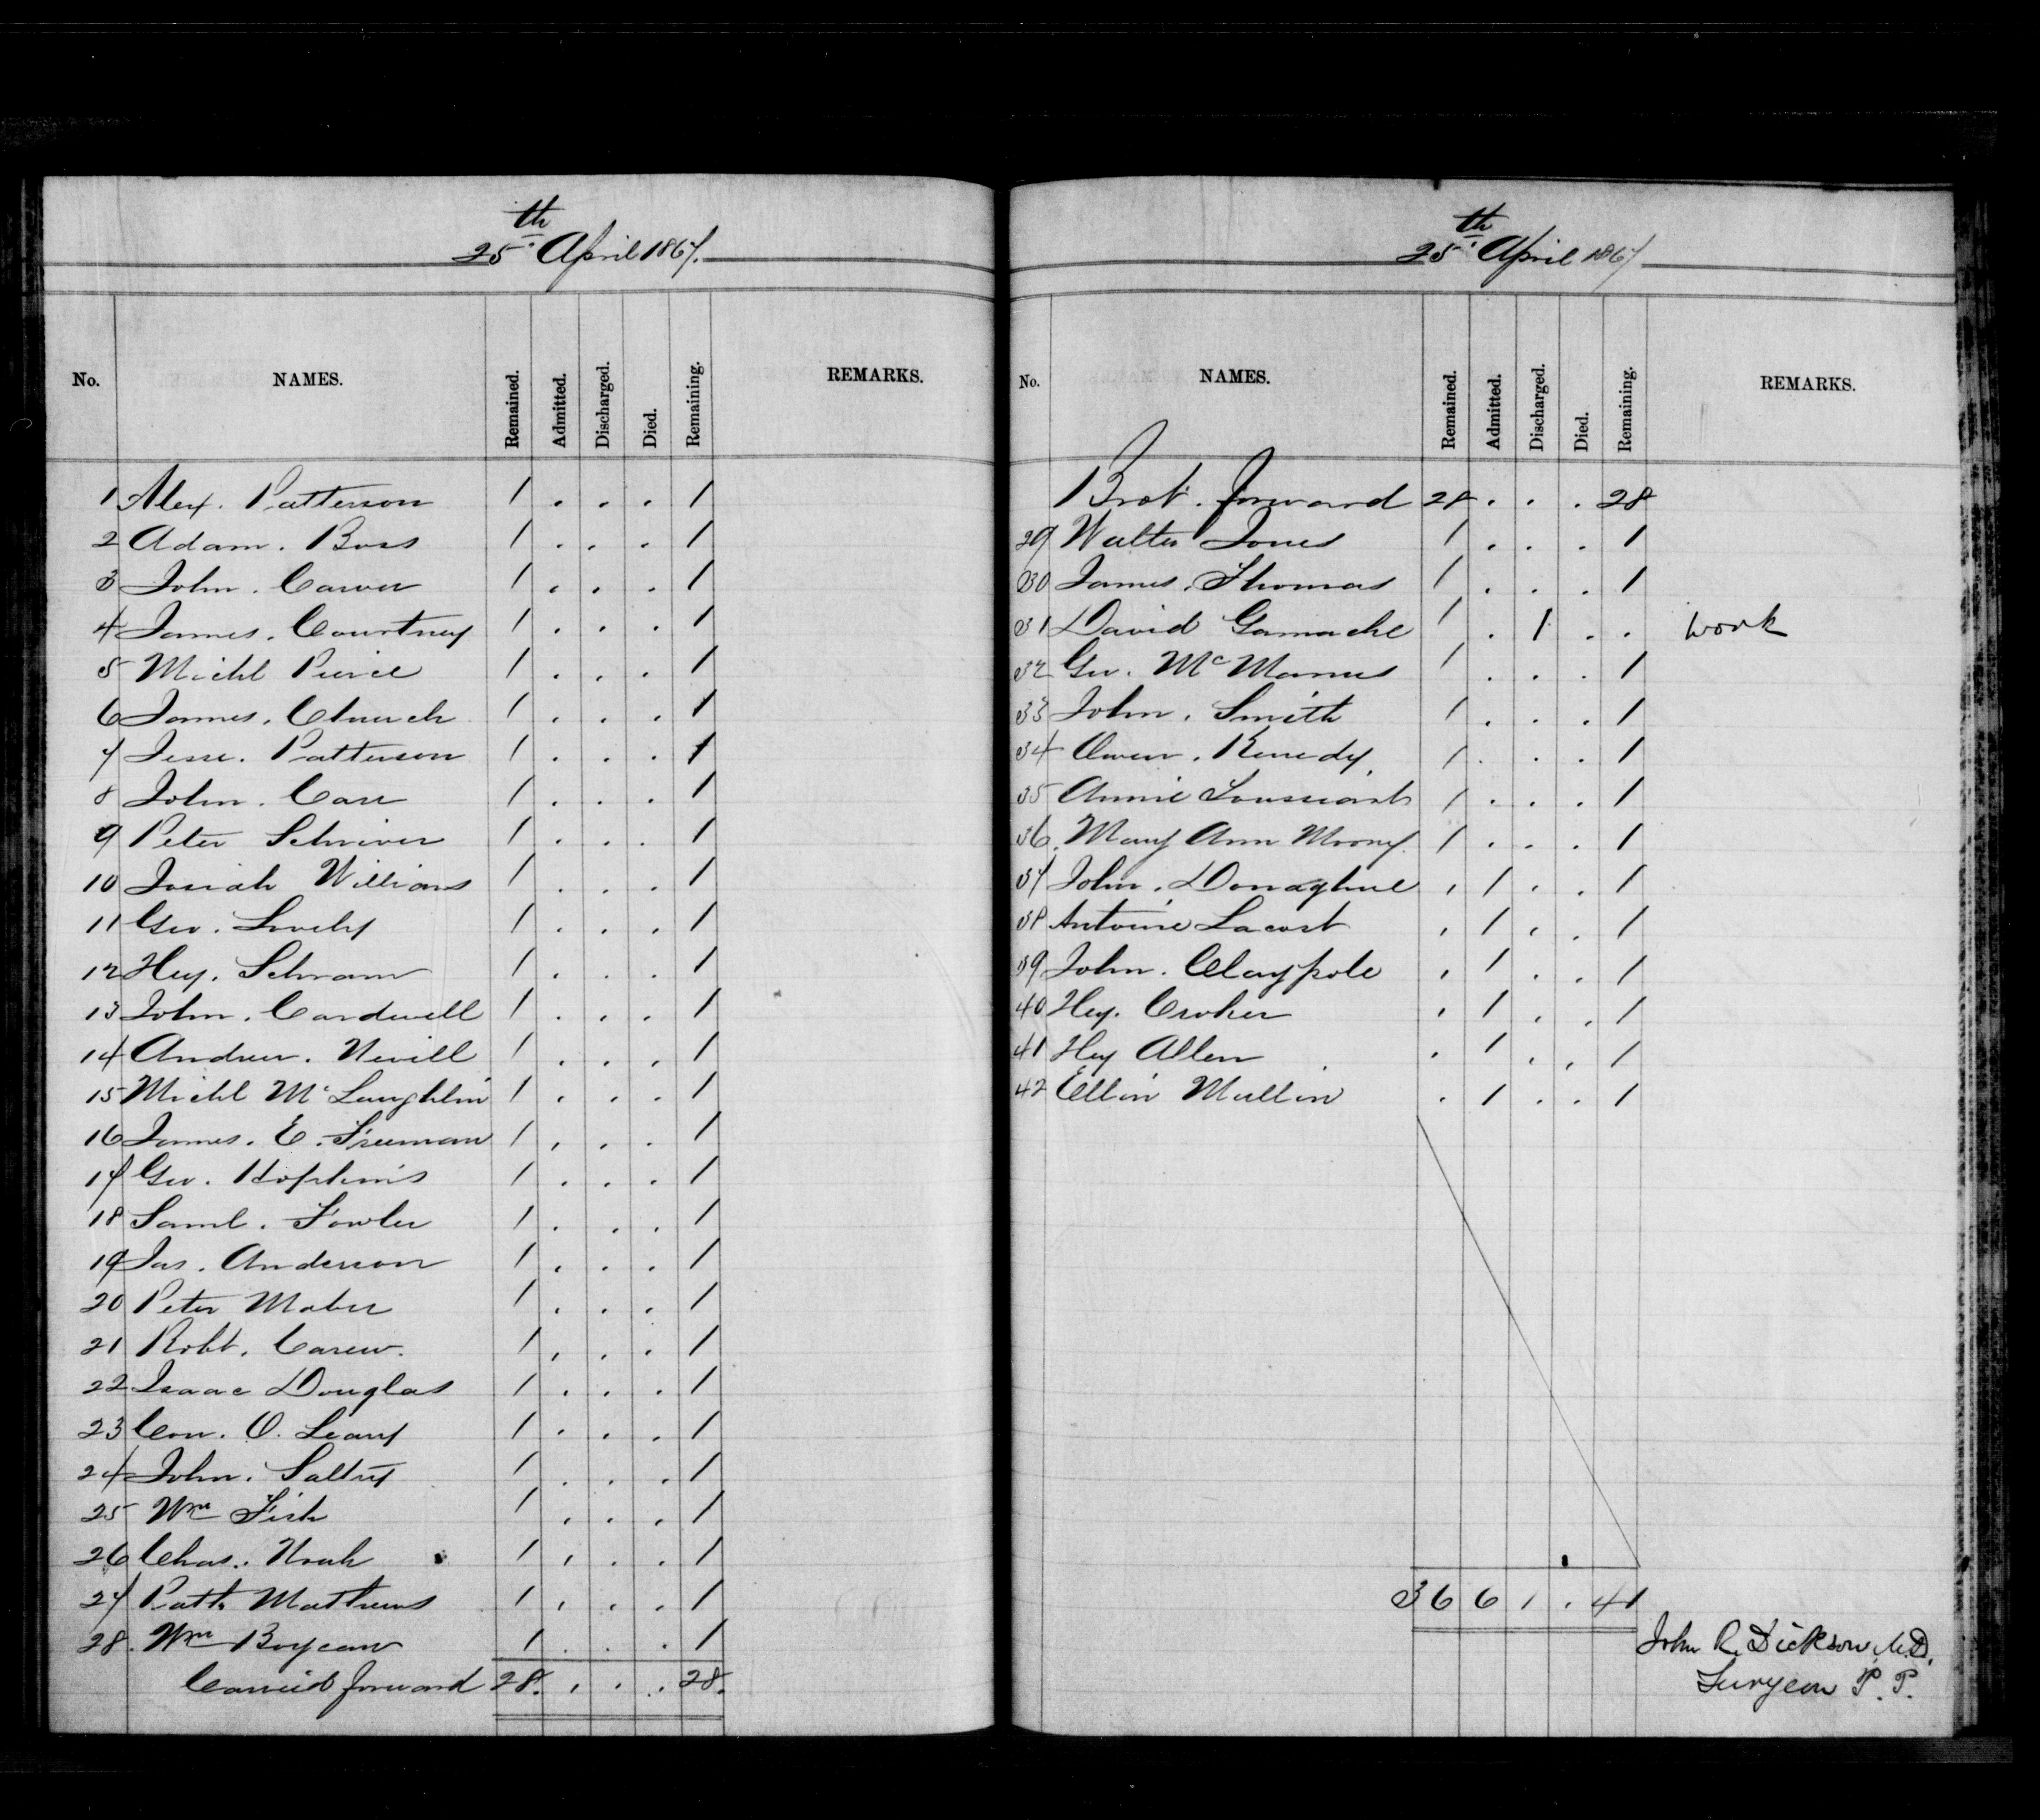 25th April 1867.
No. NAMES. Remained. Admitted. Discharged. Died. Remaining. REMARKS.
1 Alex. Patterson 1 . . . 1
2 Adam. Bass 1 . . . 1
3 John. Carver 1 . . . 1
4 James. Courtney 1 . . . 1
5 Michl Pierce 1 . . . 1
6 James. Church 1 . . . 1
7 Jesse. Patterson 1 . . . 1
8 John. Carr 1 . . . 1
9 Peter Schriver 1 . . . 1
10 Josiah Williams 1 . . . 1
11 Geo. Lovely 1 . . . 1
12 Hey. Schram 1 . . . 1
13 John. Cardwell 1 . . . 1
14 Andrew. Nevill 1 . . . 1
15 Michl McLaughlin 1 . . . 1
16 James. E. Freeman 1 . . . 1
17 Geo. Hopkins 1 . . . 1
18 Saml. Fowler 1 . . . 1
19 Jas. Anderson 1 . . . 1
20 Peter Maber 1 . . . 1
21 Robt. Carew. 1 . . . 1
22 Isaac Douglas 1 . . . 1
23 Con. O. Leary 1 . . . 1
24 John. 1 . . . 1
25 Wm Fish 1 . . . 1
26 Chas. Noah 1 . . . 1
27 Patk Mathews 1 . . . 1
28. Wm Boyeau 1 . . . 1
Carried forward 28. . . . 28.
25th April 1867
No. NAMES. Remained. Admitted. Discharged. Died. Remaining. REMARKS.
Brot. forward 28 . . . 28
29 Walter Jones 1 . . . 1
30 James. Thomas 1 . . . 1
31 David Gamache 1 . 1 . . work
32 Geo. McManus 1 . . . 1
33 John. Smith 1 . . . 1
34 Owen. Kenedy. 1 . . . 1
35 Annie Toussiant 1 . . . 1
36. Mary Ann Moony. 1 . . . 1
37 John. Donaghue . 1 . . 1
38 Antoine Lacost . 1 . . 1
39 John. Claypole . 1 . . 1
40 Hey. Croker . 1 . . 1
41 Hey Allen . 1 . . 1
42 Ellin Mullin . 1 . . 1
36 6 1 . 41
John R. Dickson, M.D.
Surgeon P. P.